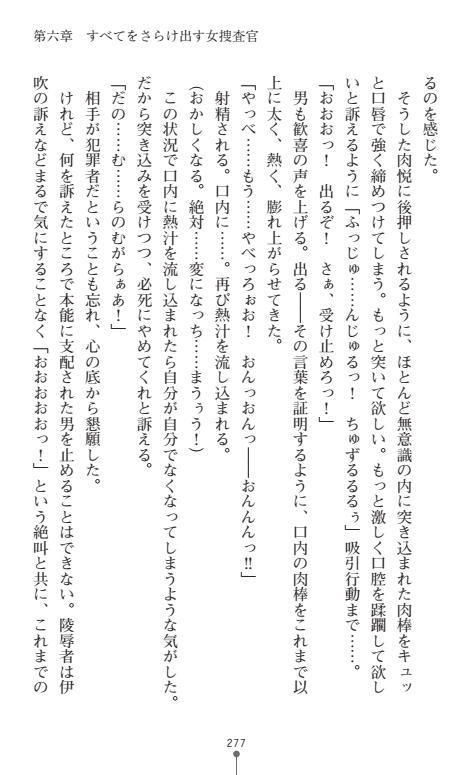 第六章　すべてをさらけ出す女捜査官
るのを感じた。
　そうした肉悦に後押しされるように、ほとんど無意識の内に突き込まれた肉棒をキュッ
と口唇で強く締めつけてしまう。もっと突いて欲しい。もっと激しく口腔を蹂躙して欲し
いと訴えるように「ふっじゅ……んじゅるっ！　ちゅずるるるぅ」吸引行動まで……。
「おおおっ！　出るぞ！　さぁ、受け止めろっ！」
　男も歓喜の声を上げる。出る――その言葉を証明するように、口内の肉棒をこれまで以
上に太く、熱く、膨れ上がらせてきた。
「やっべ……もう……やべっろぉお！　おんっおんっ――おんんんっ!!」
　射精される。口内に……。再び熱汁を流し込まれる。
（おかしくなる。絶対……変になっち……まうぅう！）
　この状況で口内に熱汁を流し込まれたら自分が自分でなくなってしまうような気がした。
だから突き込みを受けつつ、必死にやめてくれと訴える。
「だの……む……らのむがらぁあ！」
　相手が犯罪者だということも忘れ、心の底から懇願した。
　けれど、何を訴えたところで本能に支配された男を止めることはできない。陵辱者は伊
吹の訴えなどまるで気にすることなく「おおおおおっ！」という絶叫と共に、これまでの
277